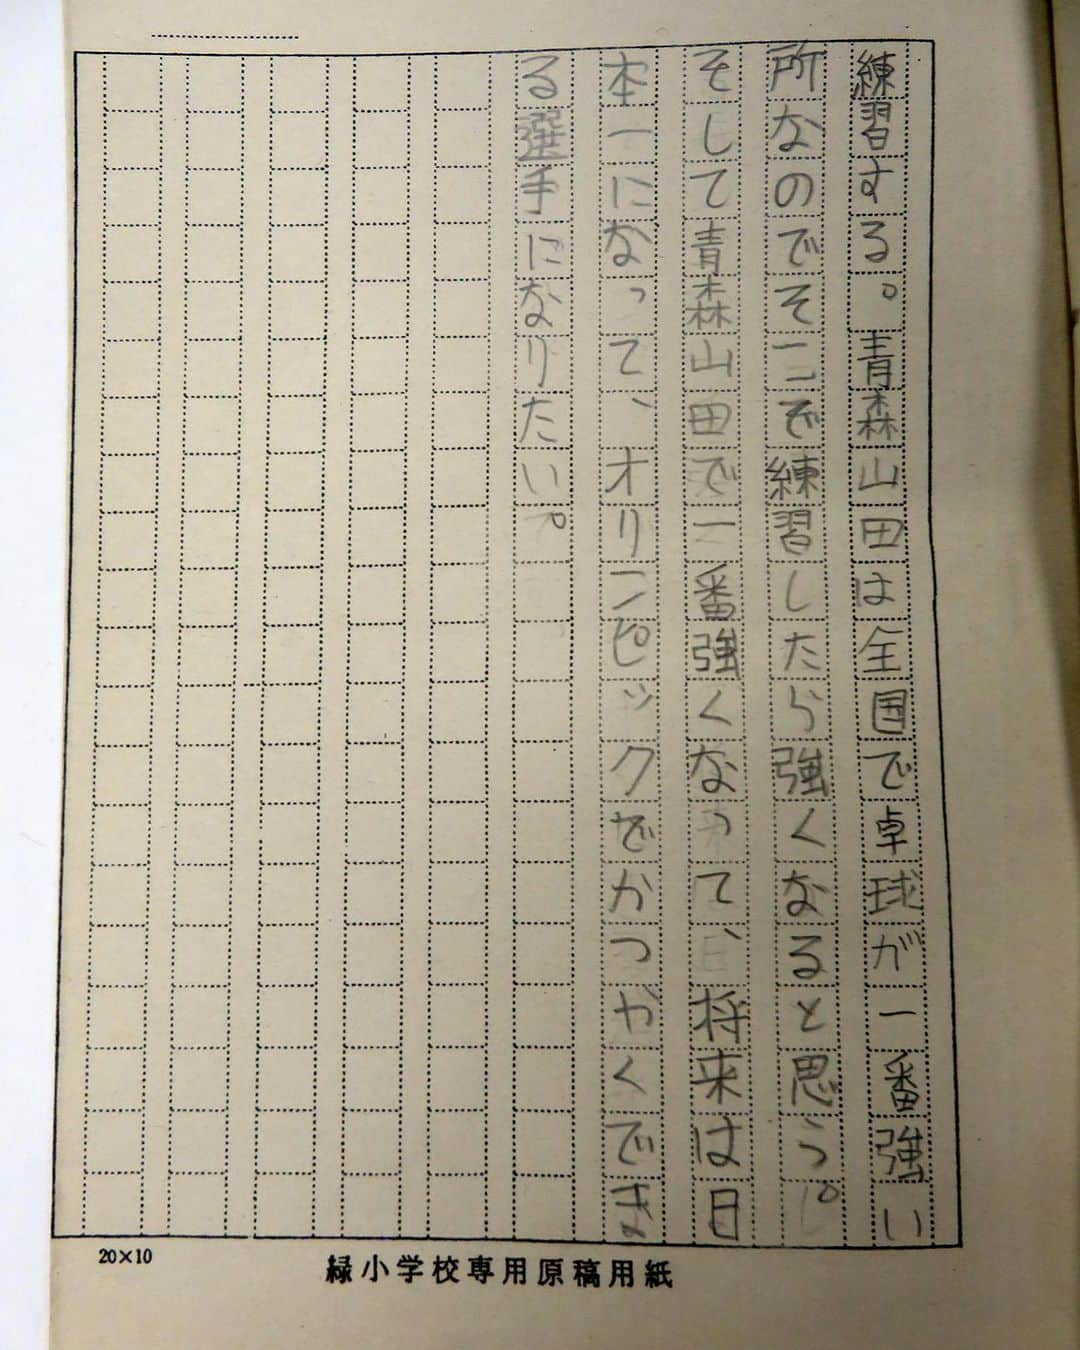 練習する。青森山田は全国で卓球が一番強い
所なのでそこで練習したら強くなると思う。
そして青森山田で一番強くなって、将来は日
本一になって、オリンピックでかつやくでき
る選手になりたい。
20×10
緑小学校専用原稿用紙